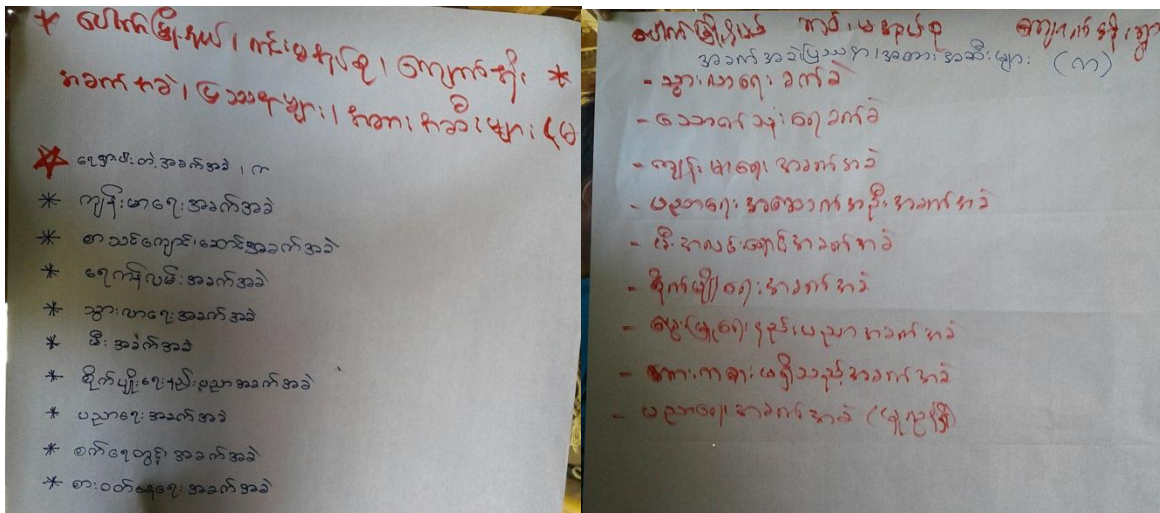 * ပေါက်မြို့နယ်၊ ကင်းမစုပ်စု၊ ကျောက်အိုး *
အခက်အခဲ၊ ပြဿနာများ၊ အတားအဆီးများ (မ
ရေရှားမီးတဲ့အခက်အခဲ ၊ က
* ကျန်းမာရေးအခက်အခဲ
* စာသင်ကျောင်းဆောင်အခက်အခဲ
* ရေကန်လမ်းအခက်အခဲ
* သွားလာရေးအခက်အခဲ
* မီးအခက်အခဲ
* စိုက်ပျိုးရေးနည်းပညာအခက်အခဲ
* ပညာရေးအခက်အခဲ
* စက်ရေတွင်းအခက်အခဲ
* စားဝတ်နေရေးအခက်အခဲ
ပေါက်မြို့နယ်
အခက်အခဲပြဿနာ၊အတားအဆီးများ (က)
- သွားလာရေးခက်ခဲ
- သောက်သုံးရေခက်ခဲ
- ကျန်းမာရေးအခက်အခဲ
- ပညာရေးအဆောက်အဦးအခက်အခဲ
- မီးအလင်းရောင်အခက်အခဲ
- စိုက်ပျိုးရေးအခက်အခဲ
- မွေးမြူရေးနည်းပညာအခက်အခဲ
- အခက်အခဲ
- ပညာရေးအခက်အခဲ